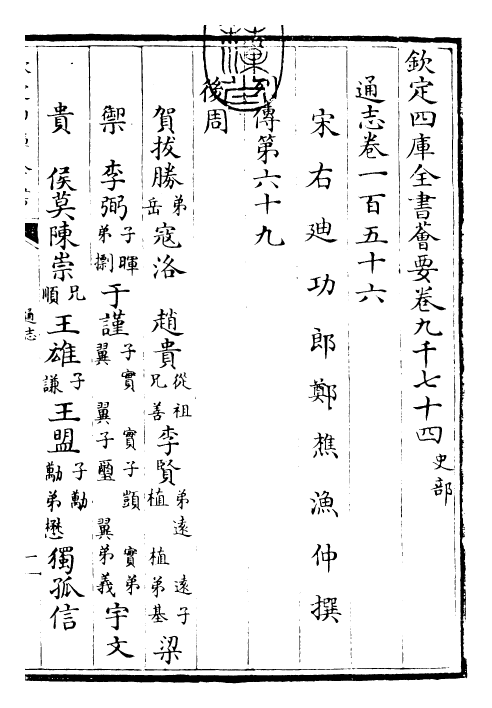 欽定四庫全書薈要卷九千七十四 史部
通志卷一百五十六
宋右迪功郎鄭樵漁仲撰
傳第六十九
後周
賀拔勝 弟岳 寇洛 趙貴 從祖兄善 李賢 弟遠 遠子植 植弟基 梁
禦 李弼 子暉弟 于謹 子實 實子顗 實弟翼 翼子璽 翼弟義 宇文
貴 侯莫陳崇 兄順 王雄 子謙 王盟 子勱勱弟懋 獨孤信
通志